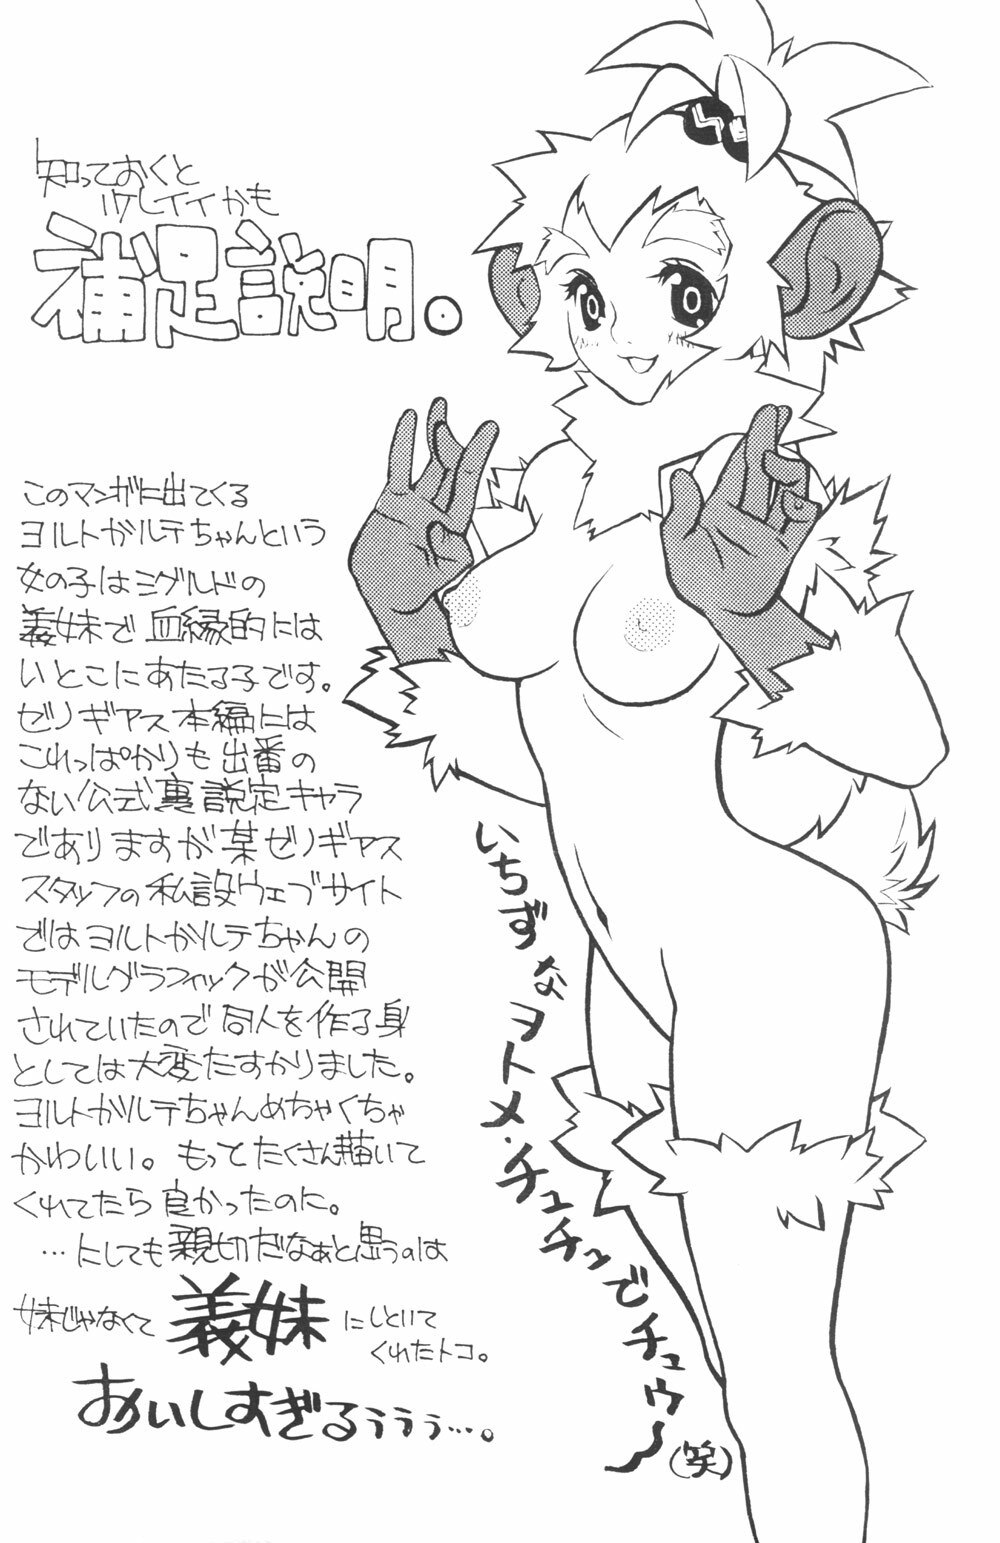 知っておくと
ケレイイかも
補足説明。
このマンガに出てくる
ヨルトガルテちゃんという
女の子はミグルドの
義妹で血縁的には
いとこにあたる子です。
ゼノギアス本編には
これっぱかりも出番の
ない公式裏設定キャラ
でありますが某ゼノギアス
スタッフの私設ウェブサイト
ではヨルトガルテちゃんの
モデルグラフィックが公開
されていたので同人を作る身
としては大変たすかりました。
ヨルトガルテちゃんめちゃくちゃ
かわいい。もっとたくさん描いて
くれてたら良かったのに。
…にしても親切だなぁと思うのは
妹じゃなくて義妹にしといて
くれたトコ。
おいしすぎるぅぅぅ…。
いちずなヲトメ・チュチュンでチュウ～
(笑)